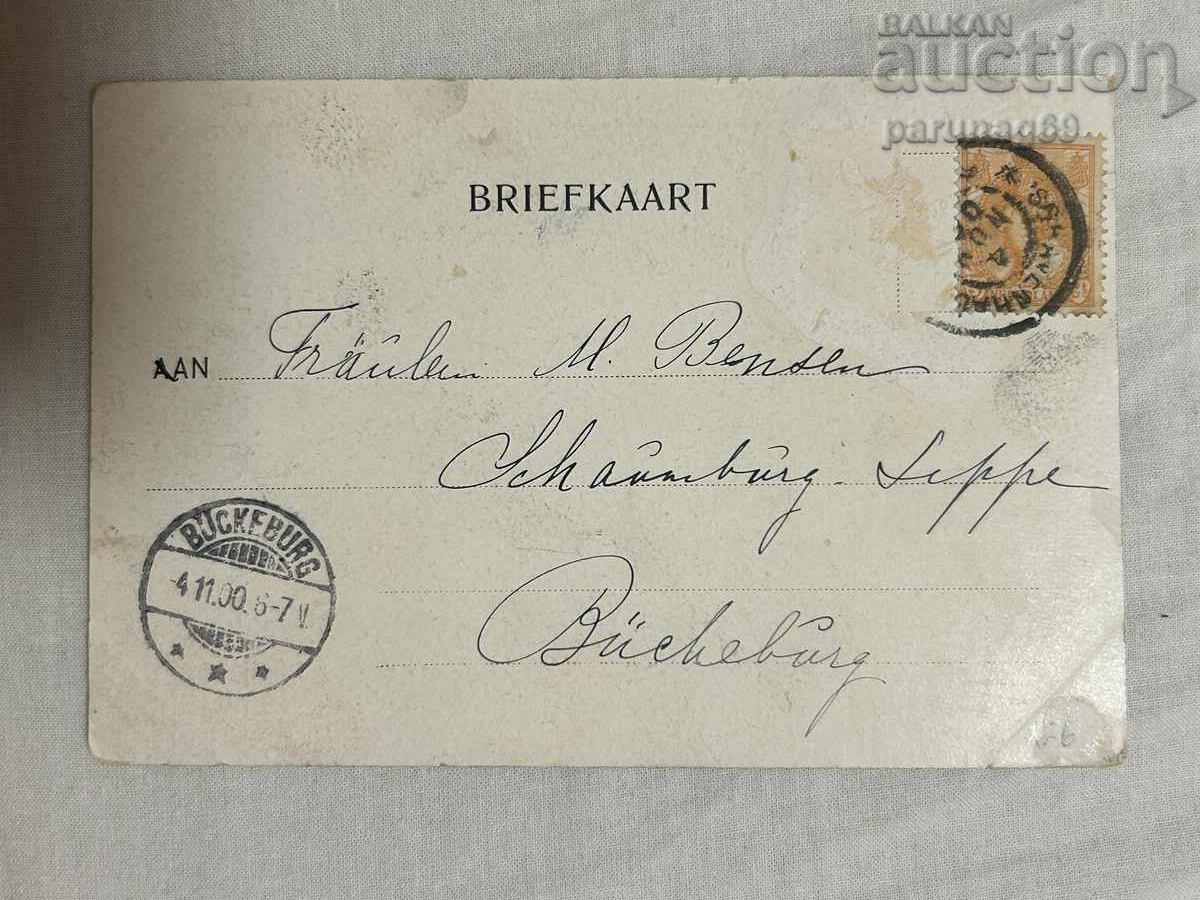 BALKAN
auction
parunaq69
BRIEFKAART
AAN Fräulein M. Bensen
Schaumburg. Lippe
Bückeburg
BÜCKEBURG
4.11.00. 6-7 V.